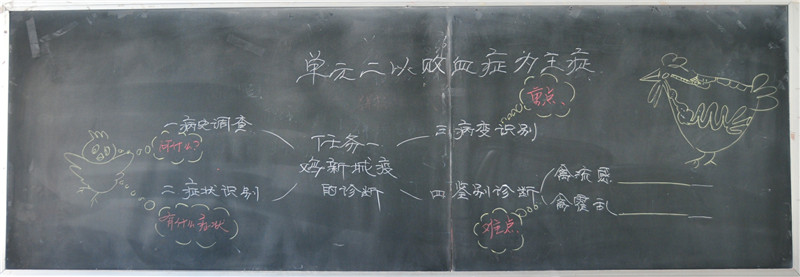 单元二以败血症为主症
任务一
鸡新城疫
的诊断
一病史调查
问什么?
二症状识别
有什么症状
三病变识别
重点
四鉴别诊断
难点
禽流感
禽霍乱